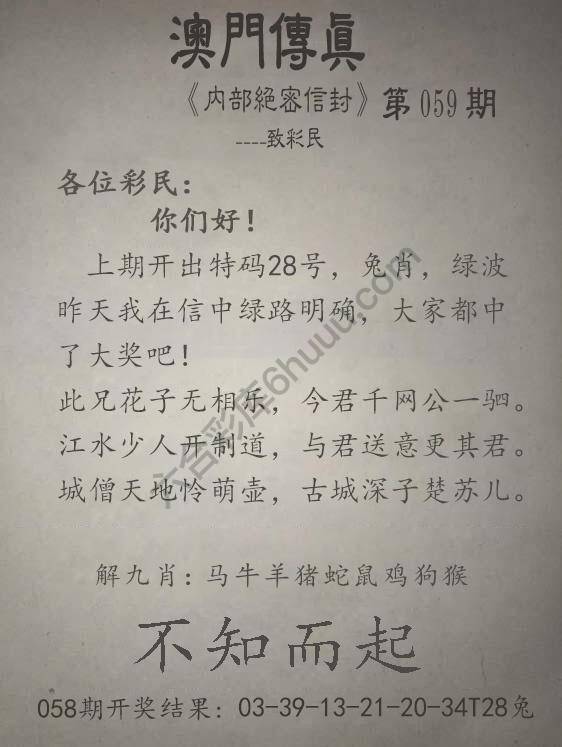 澳門傳真
《内部絕密信封》第059期
----致彩民
各位彩民：
你们好！
上期开出特码28号，兔肖，绿波
昨天我在信中绿路明确，大家都中
了大奖吧！
此兄花子无相乐，今君千网公一驷。
江水少人开制道，与君送意更其君。
城僧天地怜萌壶，古城深子楚苏儿。
解九肖：马牛羊猪蛇鼠鸡狗猴
不知而起
058期开奖结果：03-39-13-21-20-34T28兔
六合彩库6huuu.com